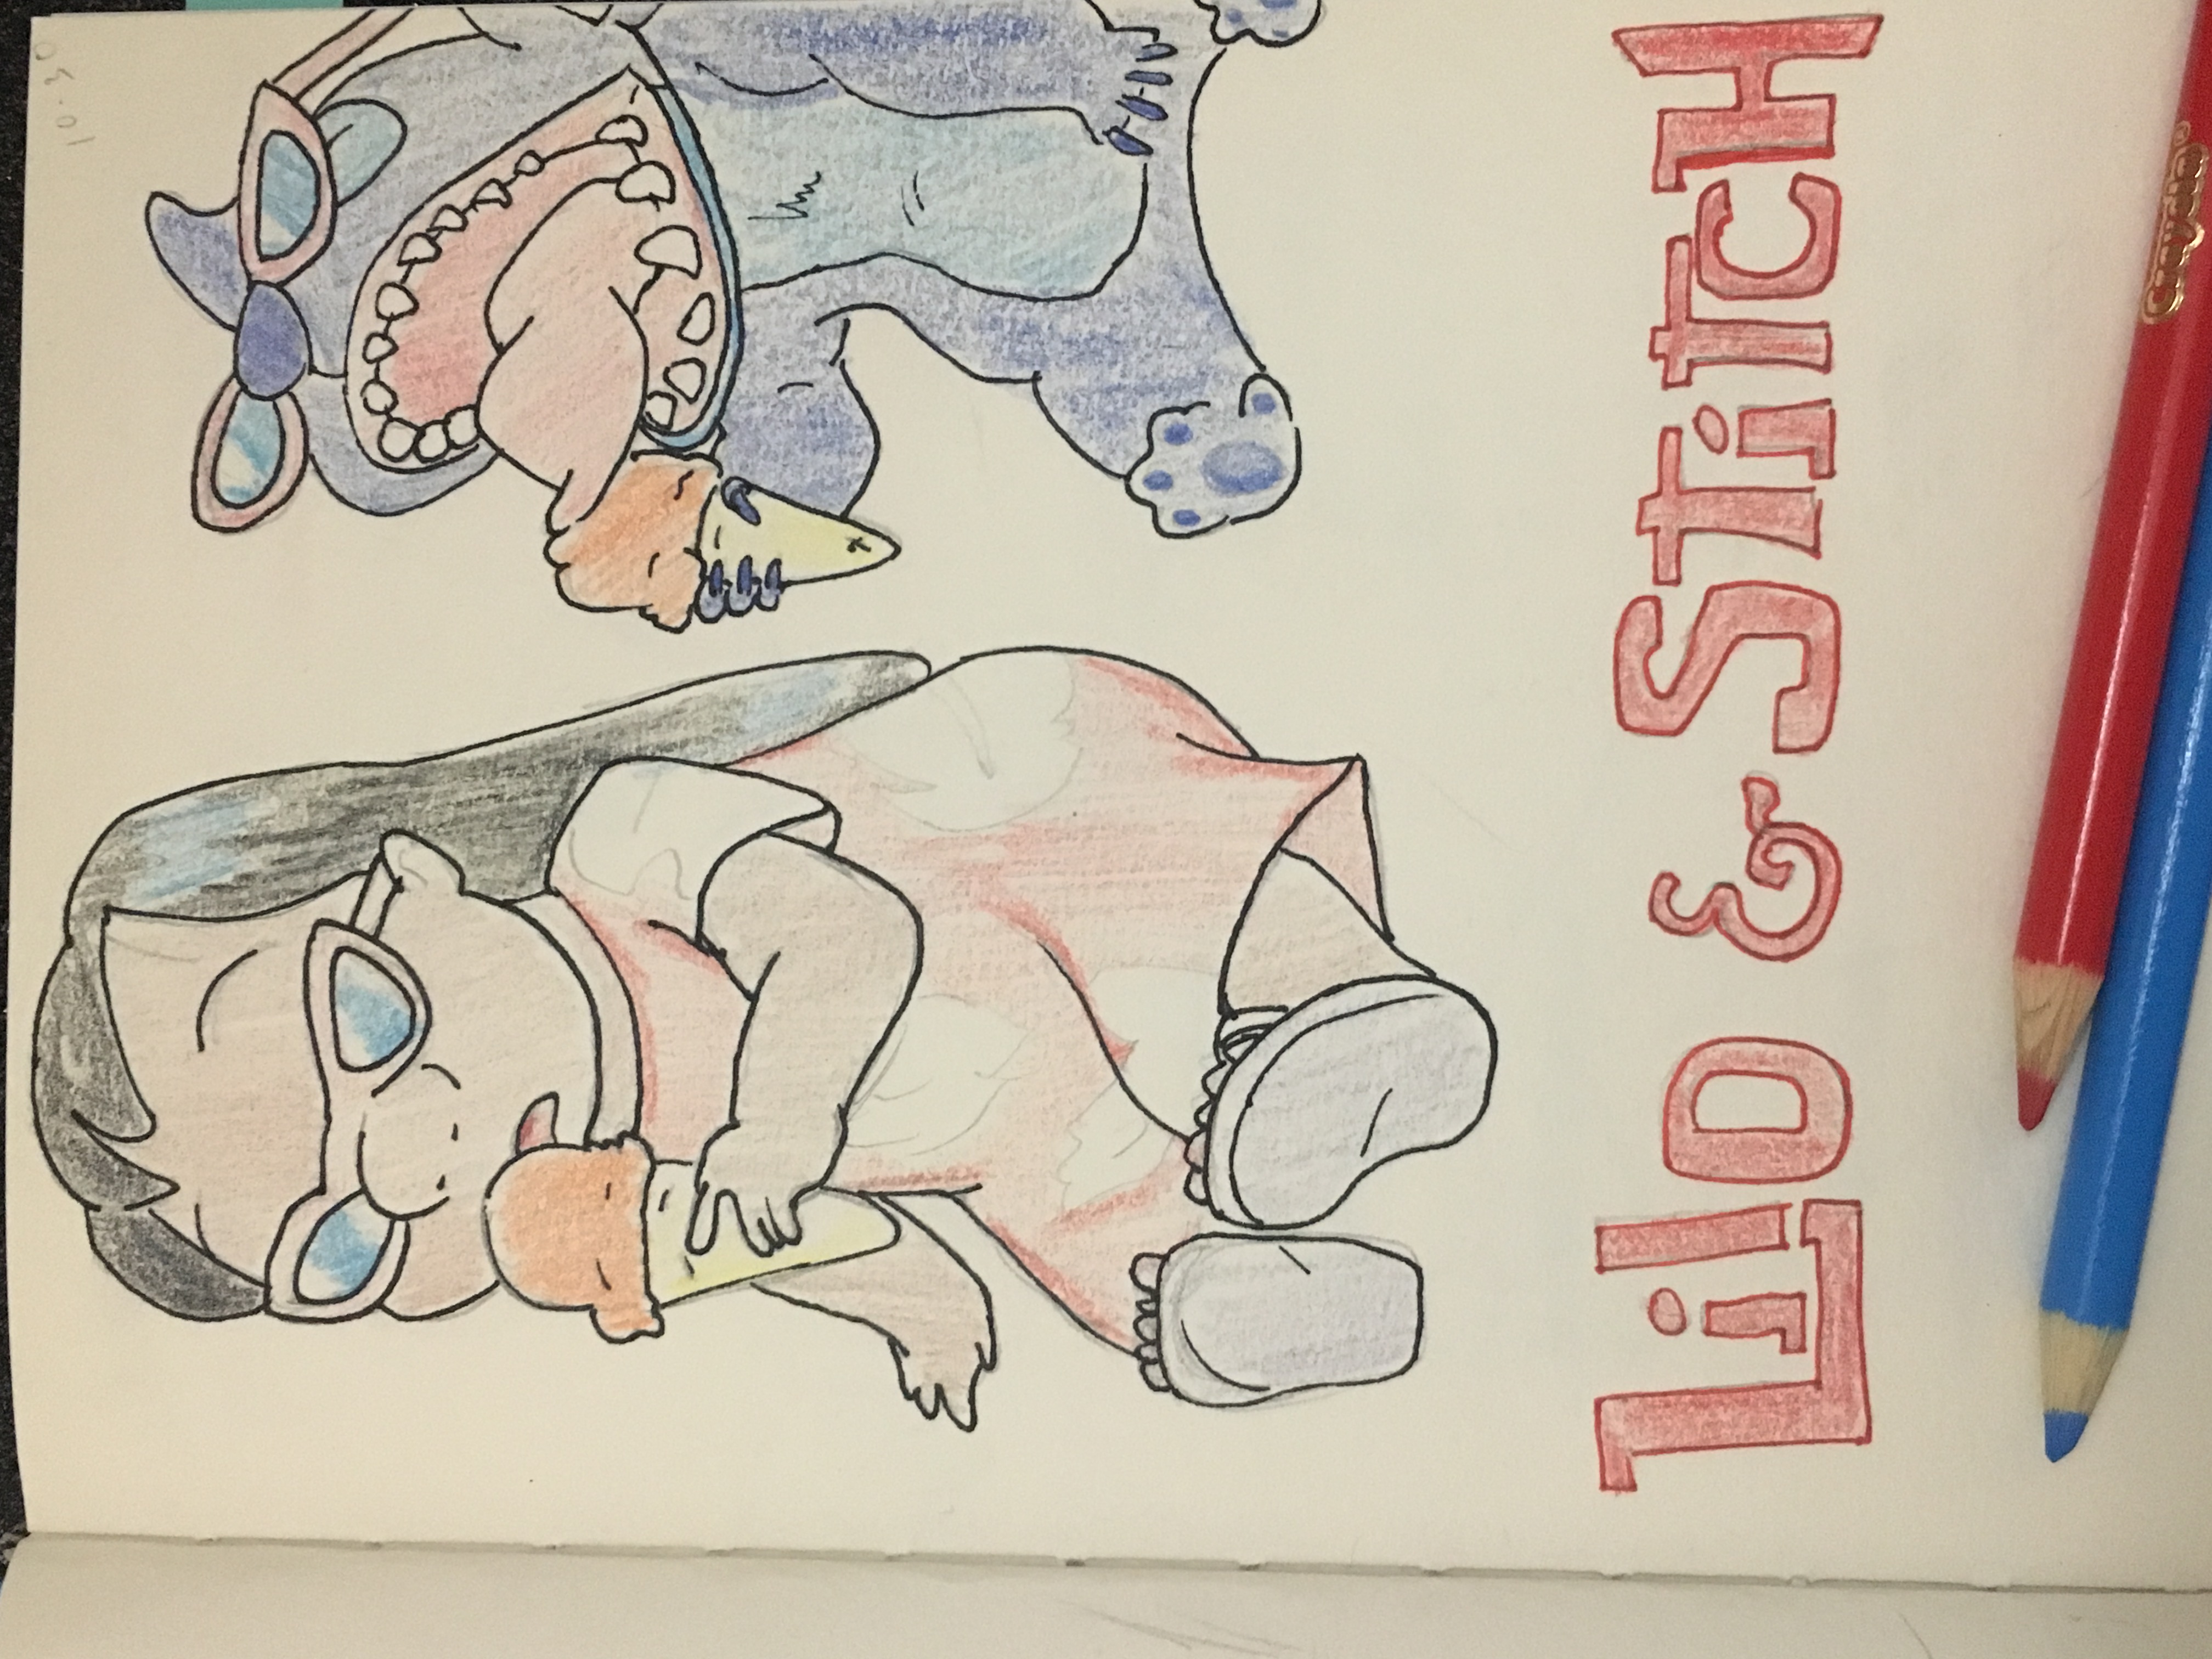 10.30
Lilo & Stitch
Crayola®